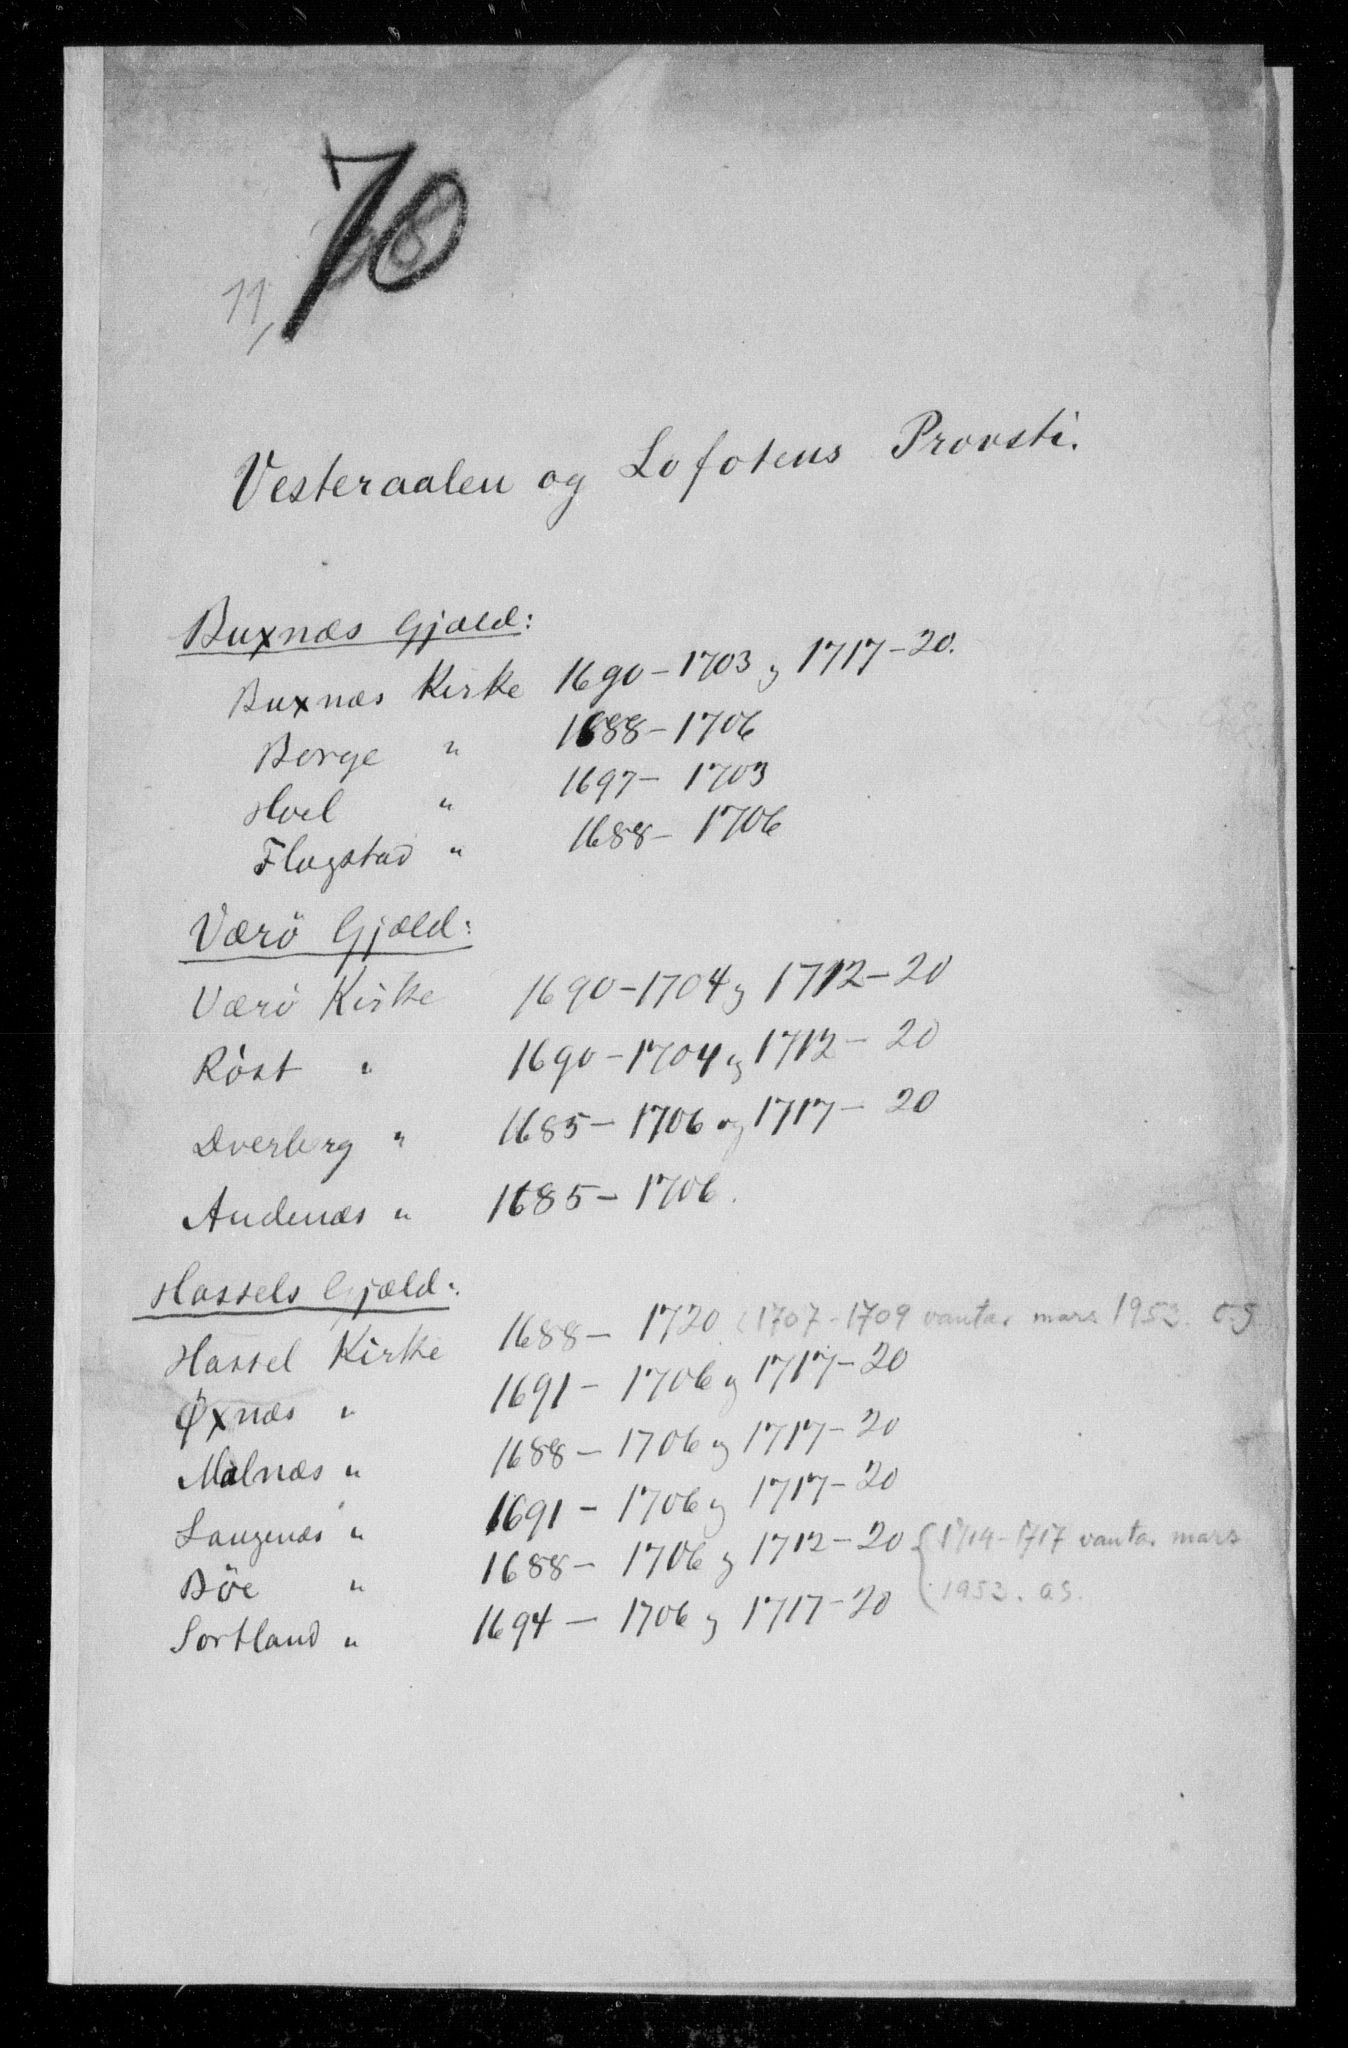 70
11,
Vesteraalen og Lofotens Provsti.
Buxnæs Gjæld:
Buxnæs Kirke 1690-1703 og 1717-20.
Borge " 1688-1706
Hoel " 1697-1703
Flagstad " 1688-1706
Værö Gjæld:
Værö Kirke 1690-1704 og 1712-20
Röst " 1690-1704 og 1712-20
Dverberg " 1685-1706 og 1717-20
Andenæs " 1685-1706.
Hassels Gjæld:
Hassel Kirke 1688-1720 (1707-1709 vantar mars 1953. O.S.
Øxnæs " 1691-1706 og 1717-20
Malnæs " 1688-1706 og 1717-20
Langenæs " 1691-1706 og 1717-20
Böe " 1688-1706 og 1712-20 { 1714-1717 vantar mars
1953. O.S.
Sortland " 1694-1706 og 1717-20